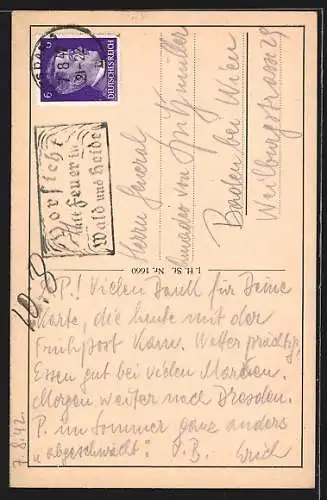 6
6
DEUTSCHES REICH
7.8.42
Vorsicht
mit Feuer in
Wald und Heide!
Herrn General
von
Baden bei Wien
Weilburgstrasse 29
J. H. St. Nr. 1660
10.8
L.P.! Vielen Dank für Deine
Karte, die heute mit der
Frühpost kam. Wetter prächtig,
Essen gut bei vielen Marken.
Morgen weiter nach Dresden.
P. im Sommer ganz anders
u. "abgeschwächt". V.B. Erich
7.8.42.